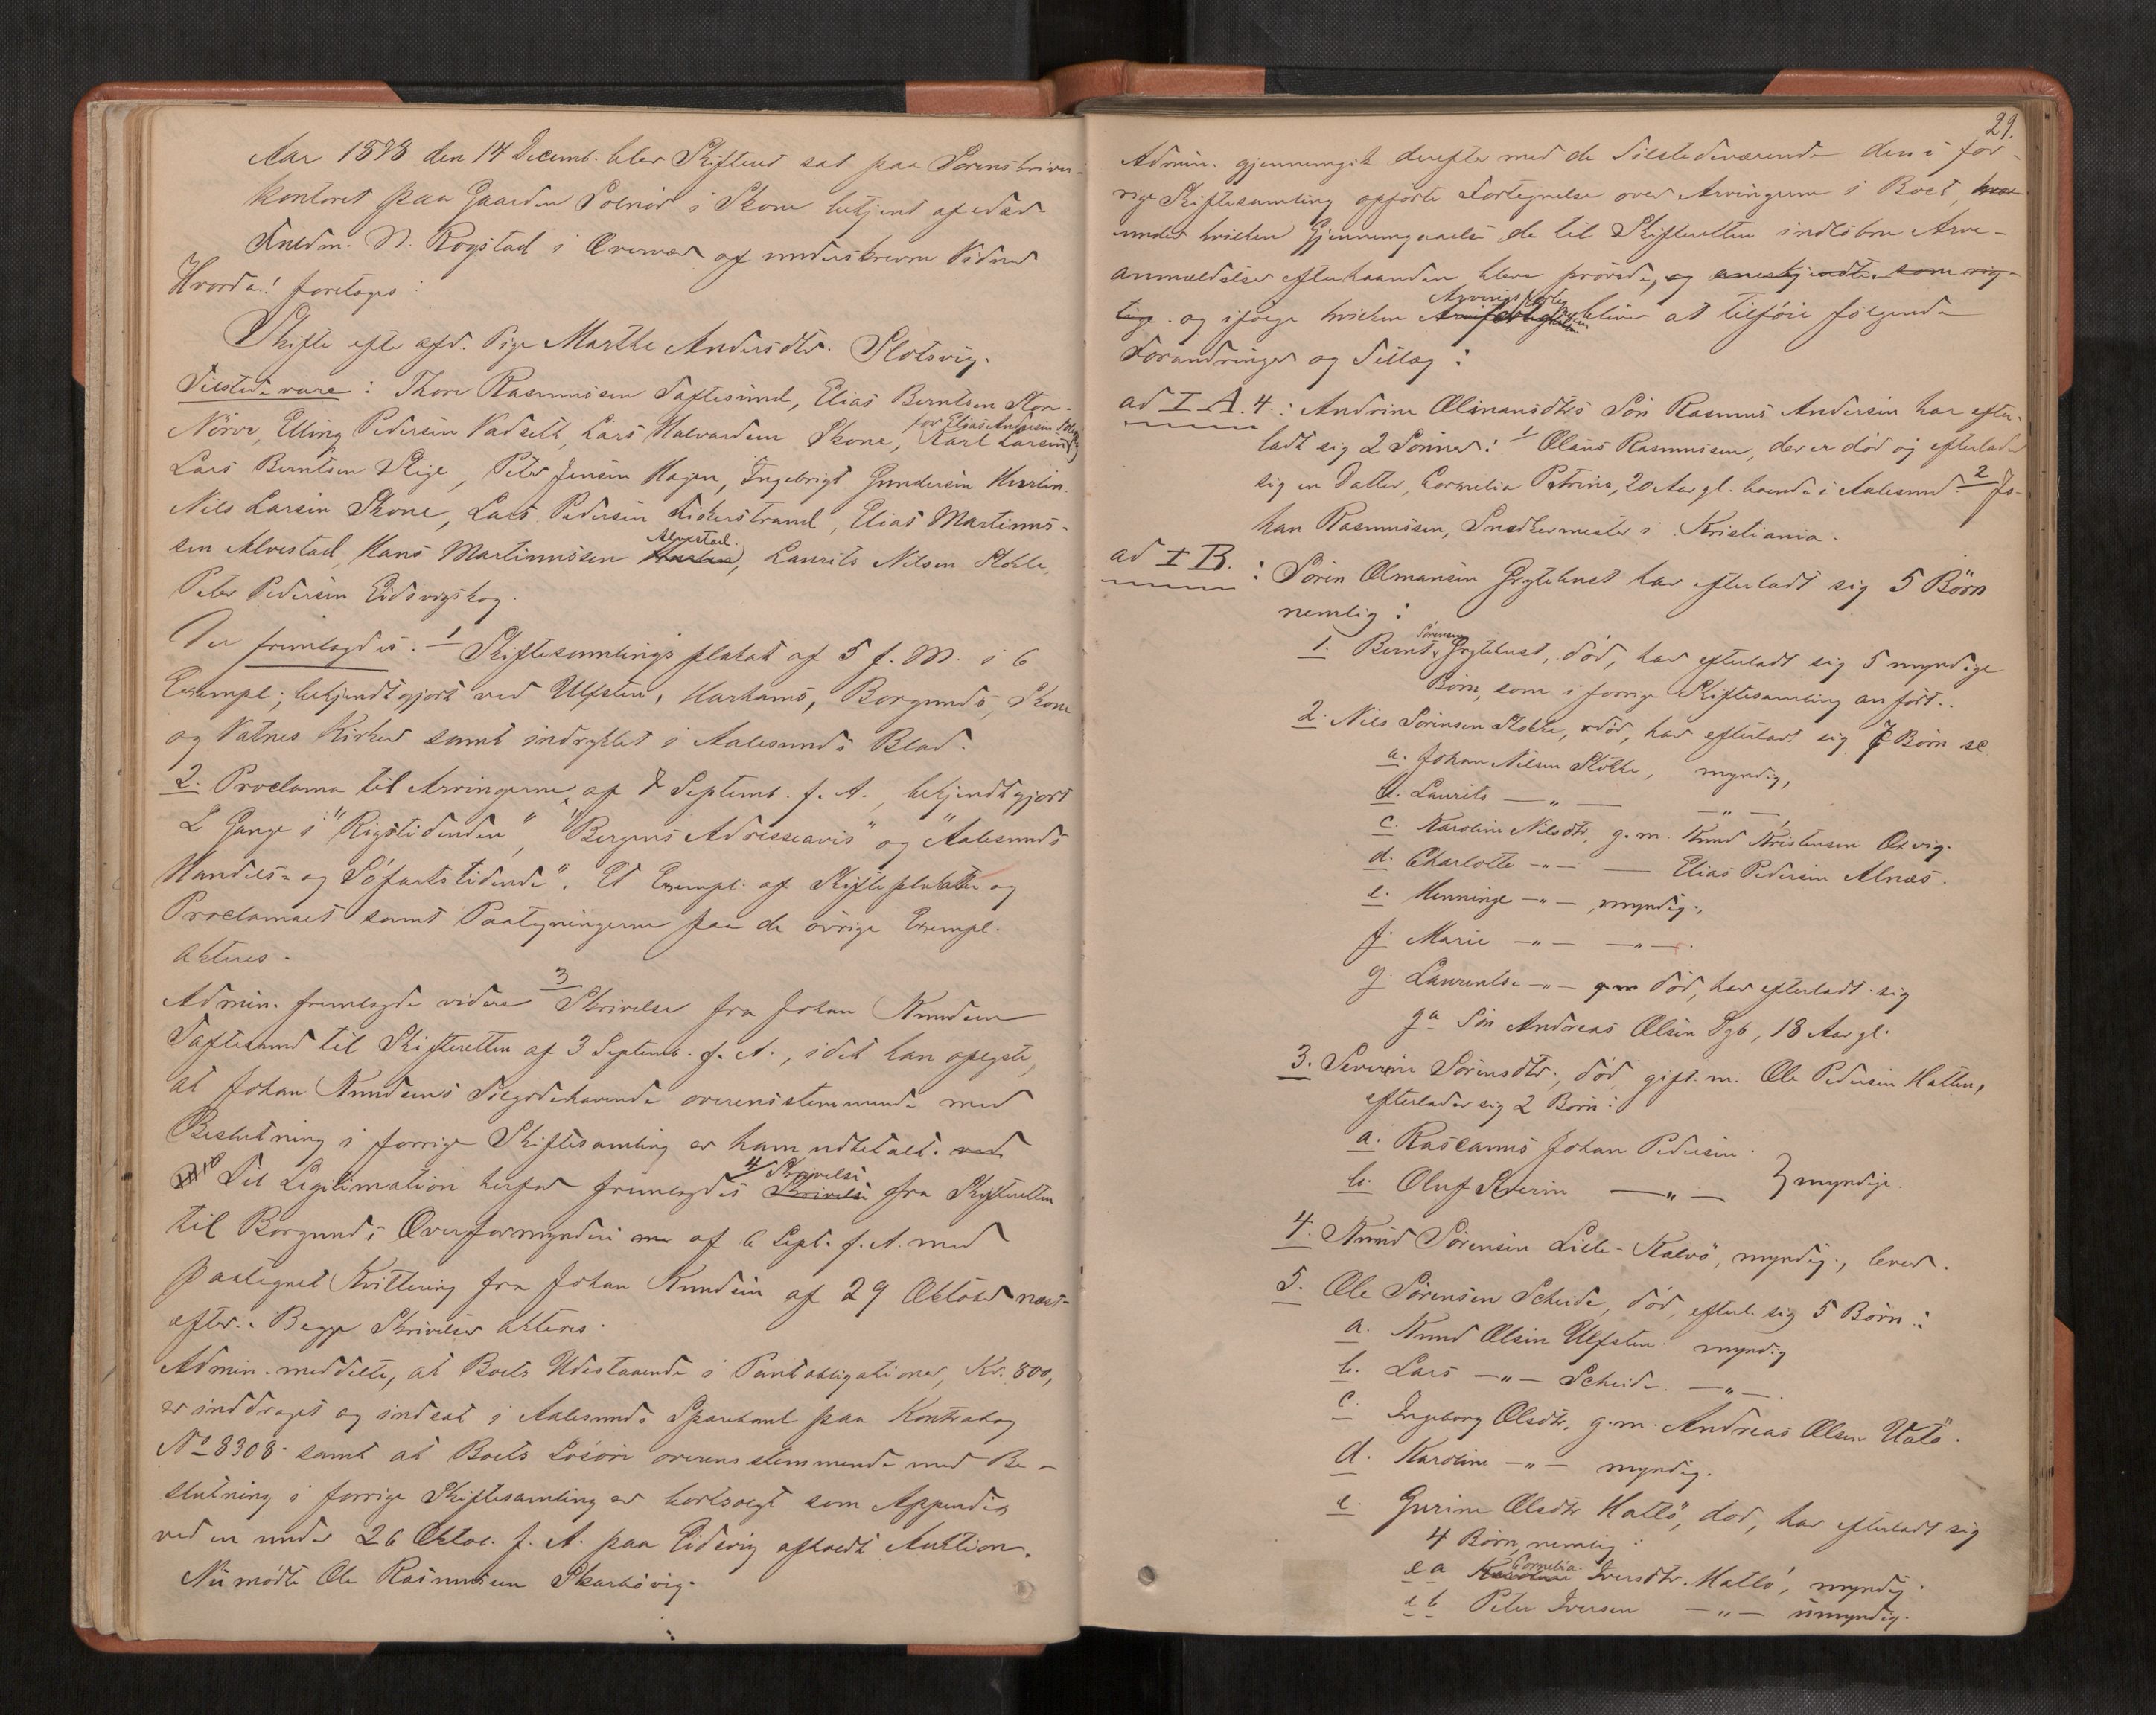 Aar 1898 den 14 Decemb. blev Skifteret sat paa Sorenskriver-
kontoret paa Gaarden Solnör i Skone betjent af edsv.
Fuldm. N. Rogstad i Overvær af underskrevne Vidner
Hvorda! foretoges:
Skifte efter afd. Pige Marthe Andersdtr. Slotsvig.
Tilstede vare: Thore Rasmussen Taftesund, Elias Berntsen Stor-
Nörve, Elling Pedersen Vadset, Lars Halvardsen Skone, for Elias Andersen Karl Larsen
Lars Berntsen Slige, Peter Jensen Hagen, Ingebrigt Gundersen
Nils Larsen Skone, Lars Pedersen Liderstrand, Elias Martinus-
sen Alvestad, Hans Martinussen Alvestad, Laurits Nilsen Stokke,
Peter Pedersen Eidsvigskog.
Der fremlagdes. 1 Skiftesamlingsplakat af 5 f. M. i 6
Exempl., bekjendtgjort ved Ulfsten, Harhams, Borgunds, Skone
og Vatnes Kirker samt indrykket i Aalesunds Blad.
2. Proclama til Arvingerne, af 8 Septemb. f. A., bekjendtgjort
2 Gange i "Rigstidenden", "Bergens Adresseavis" og "Aalesunds
Handels- og Söfartstidende". Et Exempl. af Skifteplakaten og
Proclamaet samt Paategningerne paa de övrige Exempl.
akteres.
Admin. fremlagde videre 3 Skrivelse fra Johan Knudsen
Taftesund til Skifteretten af 3 Septemb. f. A., idet han oplyste,
at Johan Knudsens Tilgodehavende overensstemmende med
Beslutning i forrige Skiftesamling er ham udbetalt. med
Til Legitimation herfor fremlagdes 4 Skrivelse Skrivelse fra Skifteretten
til Borgunds Overformynderi af 6 Sept. f. A. med
paategnet Kvittering fra Johan Knudsen af 29 Oktober næst-
efter. Begge Skrivelser akteres.
Admin. meddelte, at Boets Udestaaende i Pantobligationer, Kr. 800,
er inddraget og indsat i Aalesunds Sparebank paa Kontrabog
No 8308 samt at Boets Lösöre overensstemmende med Be-
slutning i forrige Skiftesamling er bortsolgt som Appendix
ved en under 26 Oktob. f. A. paa Eidsvig afholdt Auktion.
Nu mödte Ole Rasmussen Skarbövig.
29.
Admin. gjennemgik derefter med de Tilstedeværende den i for-
rige Skiftesamling opförte Fortegnelse over Arvingerne i Boet, hvor
under hvilken Gjennemgaaelse de til Skifteretten indlöbne Arve-
anmældelser efterhaanden bleve prövede, og anerkjendte som rig-
tige. og ifölge hvilken bliver at tilföie fölgende
Forandringer og Tillæg:
ad I A. 4: Andrine Olsmansdtrs Sön Rasmus Andersen har efter-
ladt sig 2 Sönner: 1 Olaus Rasmussen, der er död og efterlader
sig en Datter, Cornelia Petrine, 20 Aar gl. boende i Aalesund. 2 Jo-
han Rasmussen, Snedkermester i Kristiania.
ad I B.: Sören Olmansen Grytehust har efterladt sig 5 Börn
nemlig:
1. Bernt Sörensen Grytehust, död, har efterladt sig 5 myndige
Börn, som i forrige Skiftesamling anfört.
2. Nils Sörensen Stokke, död, har efterladt sig 7 Börn sc
a. Johan Nilsen Stokke, myndig,
b. Laurits —"— —"—
c. Karoline Nilsdtr, g. m. Knud Kristensen Oxvig.
d. Charlotte —"— — Elias Pedersen Alnæs.
e. Henninge —"— myndig.,
f. Marie —"— —"—.
g. Laurentse —"— död, har efterladt sig
ga Sön Andreas Olsen Sgb, 18 Aar gl.
3. Severine Sörensdtr., död, gift. m. Ole Pedersen Hatlen,
efterlader sig 2 Börn:
a. Rascanus Johan Pedersen.
b. Oluf Severin —"— } myndige.
4. Knud Sörensen Lille-Kalvö, myndig., lever.
5. Ole Sörensen Scheide, död, efterl. sig 5 Börn:
a. Knud Olsen Ulfsten myndig
b. Lars —"— Scheide. —"—.
c. Ingeborg Olsdtr, g. m. Andreas Olsen Ulatö.
d. Karoline —"— myndig.
e. Gurine Olsdtr Hatlö, död, har efterladt sig
4 Börn, nemlig:
ea Cornelia Iversdtr. Hatlö, myndig.
eb Peter Iversen —"— umyndig.